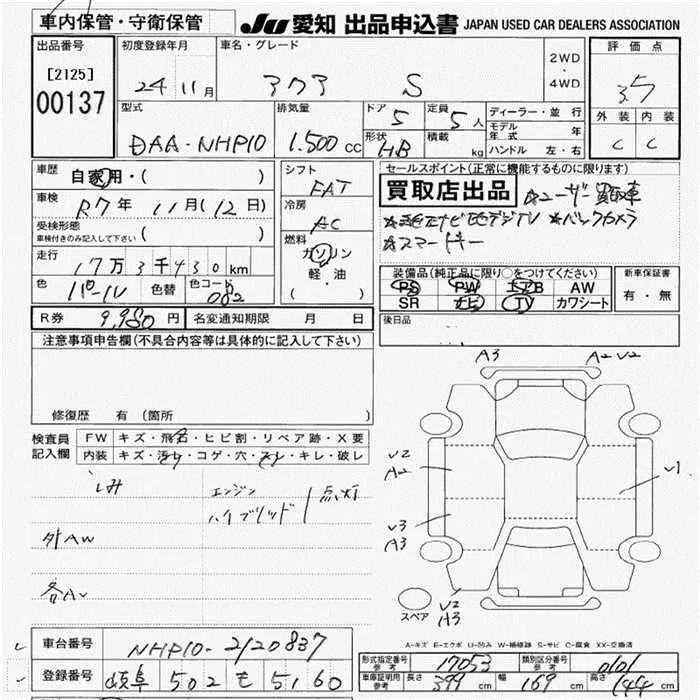 車内保管・守衛保管
JU 愛知 出品申込書 JAPAN USED CAR DEALERS ASSOCIATION
出品番号 [2125] 00137
初度登録年月 24 11月
車名・グレード アクア S
2WD・4WD
評価点 3.5
外装 C 内装 C
型式 DAA-NHP10
排気量 1.500 CC
ドア 5 定員 5人
形状 HB 積載 kg
ディーラー・並行
モデル年式 年
ハンドル 左・右
車歴 自家用・( )
車検 R7年 11月(12日)
受検形態 ( )
車検付きのみ記入して下さい
走行 17万3千430km
色 パール 色替 色コード 082
シフト FAT
冷房 AC
燃料 ガソリン 軽・油 ( )
セールスポイント(正常に機能するものに限ります)
買取店出品 ★ユーザー買取車
ナビ 地デジTV ★バックカメラ
★スマートキー
装備品(純正品に限り○をつけてください)
PS PW エアB AW
SR ナビ TV カワシート
新車保証書 有・無
R券 9,980円 名変通知期限 月 日
後日品
注意事項申告欄(不具合内容等は具体的に記入して下さい)
修復歴 有(箇所 )
検査員記入欄
FW キズ・飛石・ヒビ割・リペア跡・X要
内装 キズ・汚れ・コゲ・穴・スレ・キレ・破レ
シミ
エンジン
ハイブリッド 点灯
外AW
各AU
A3 A2 V2
V2
A2
V1
V3
A3
スペア V2
A3
A-キズ E-エクボ U-凹み W-補修跡 S-サビ C-腐食 XX-交換済
車台番号 NHP10-2120837
登録番号 岐阜 502 も 5160
形式指定番号 参考 17053 類別区分番号 参考 0101
車庫証明用 参考 長さ 399cm 幅 169cm 高さ 144cm